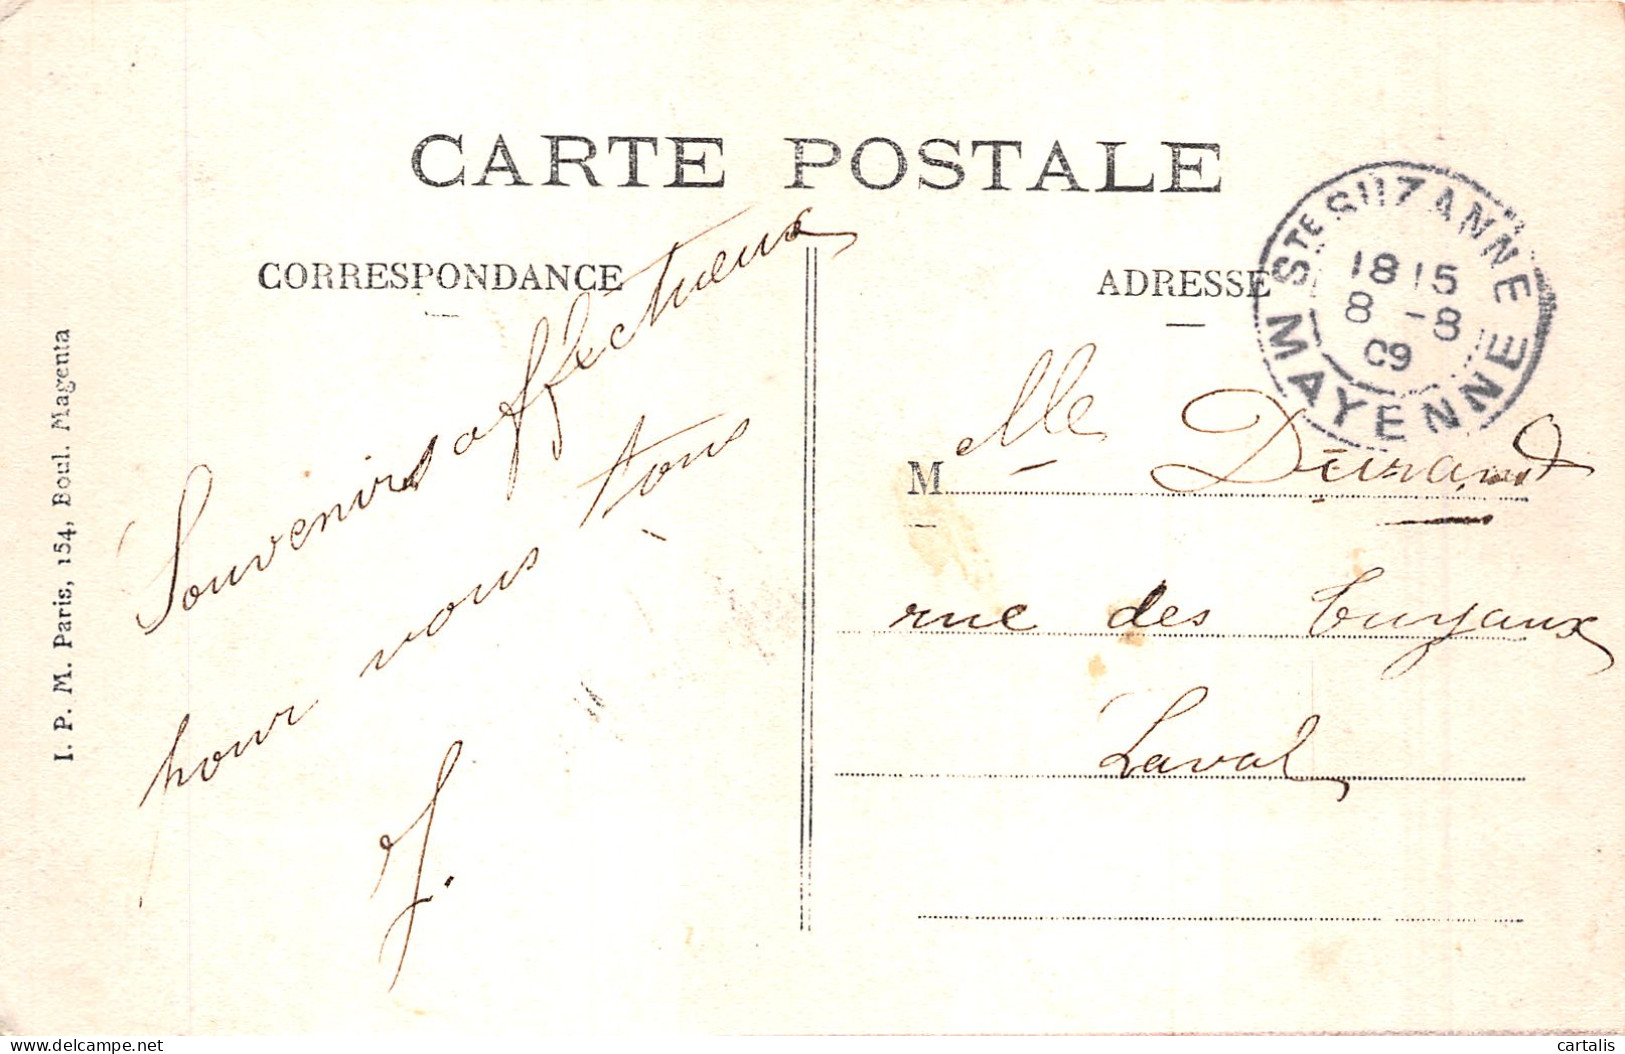 CARTE POSTALE
CORRESPONDANCE
ADRESSE
STE SUZANNE
1815
8 -8
09
MAYENNE
I. P. M. Paris, 154, Boul. Magenta
Souvenirs affectueux
pour vous tous
J.
M Mlle Durand
rue des Tuyaux
Laval
delcampe.net
cartalis